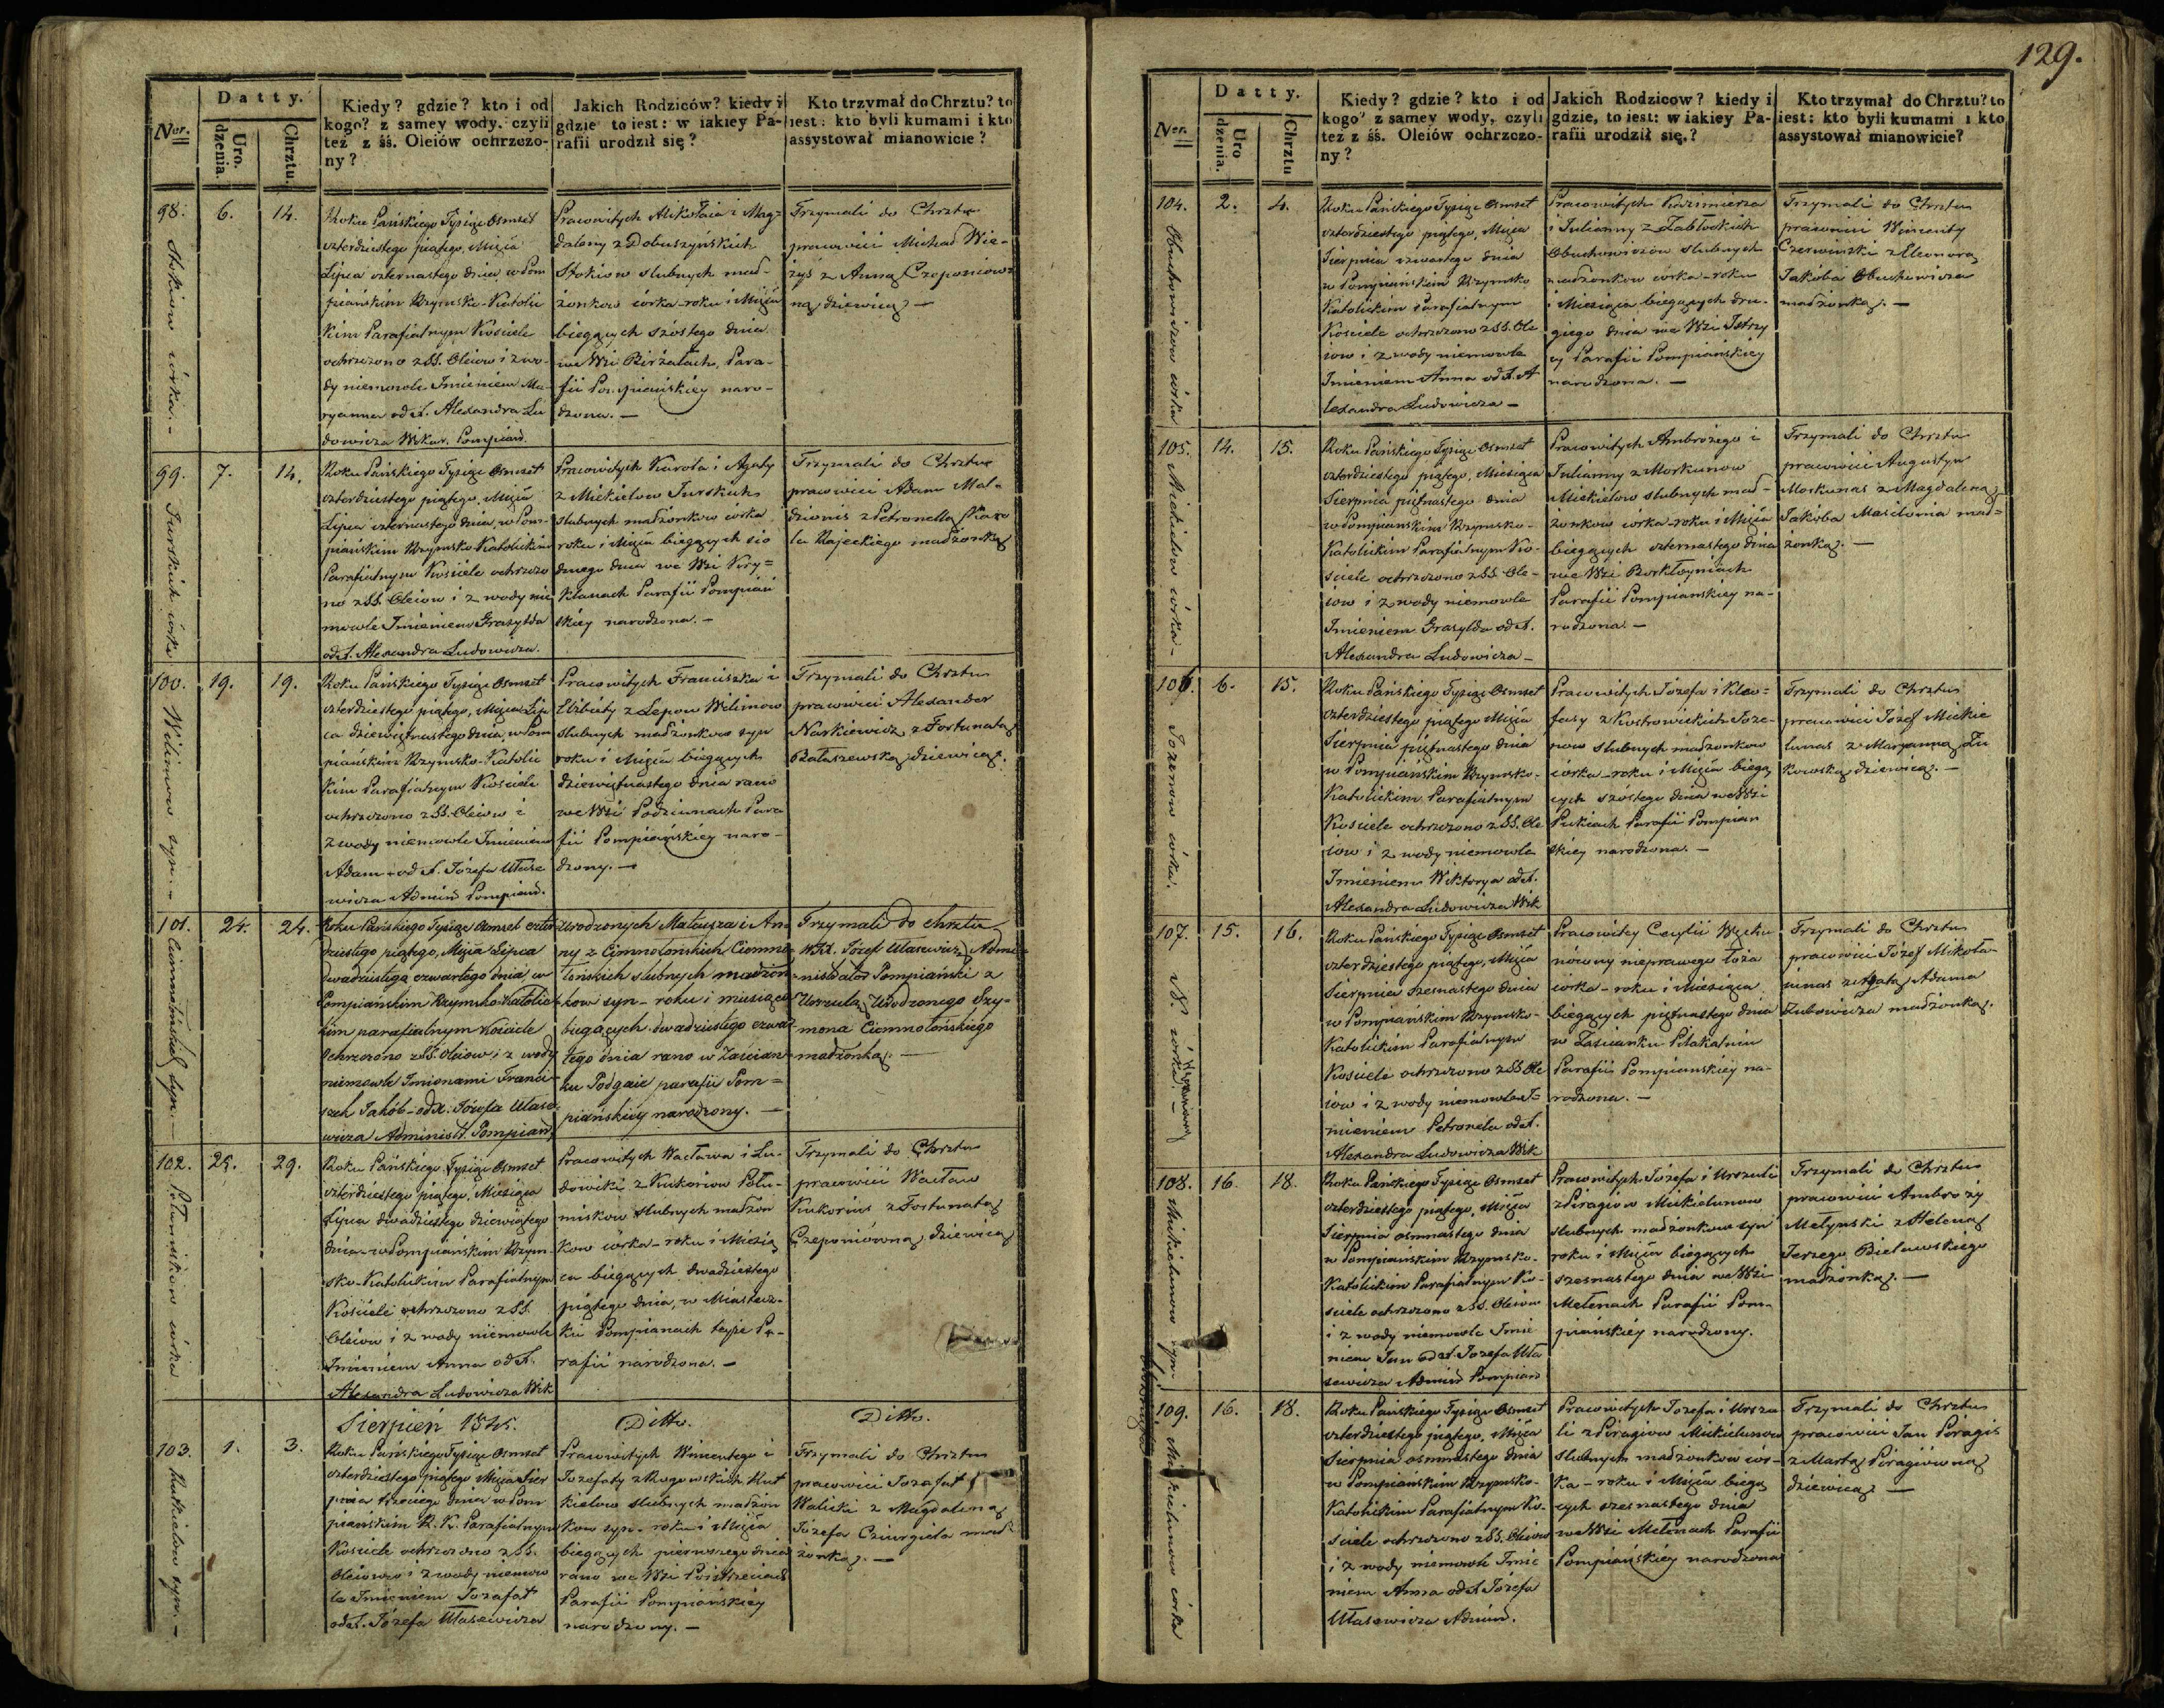 Datty.
Ner.
Uro.
dzenia.
Chrztu.
Kiedy? gdzie? kto i od
kogo? z samey wody, czyli
też z śś. Oleiów ochrzczo-
ny?
Jakich Rodziców? kiedy i
gdzie to iest: w iakiey Pa-
rafii urodził się?
Kto trzymał do Chrztu? to
iest: kto byli kumami i kto
assystował mianowicie?
98.
Stokiow córka. -
6.
14.
Roku Pańskiego Tysiąc Osmset
czterdziestego piątego, Msca
Lipca czternastego dnia w Pom
piańskim Rzymsko-Katolic
kim Parafialnym Kościele
ochrzczono z SS. Oleiow i z wo-
dy niemowle Imieniem Ma-
ryanna od X. Alexandra Lu
dowicza Wikar. Pompiań.
Pracowitych Mikołaia i Mag-
daleny z Dobuszyńskich
Stokiow slubnych mał-
żonkow córka roku i Msca
biegących szóstego dnia
we Wsi Birżałach, Para-
fii Pompiańskiey naro-
dzona. -
Trzymali do Chrztu
pracowici Michał Wie-
żyś z Anną Czeponiow-
ną dziewicą -
99.
Jurskich córka
7.
14.
Roku Pańskiego Tysiąc Osmset
czterdziestego piątego, Msca
Lipca czternastego dnia, w Pom-
piańskim Rzymsko Katolickim
Parafialnym Kościele ochrzczo
no z SS. Oleiow i z wody nie
mowle Imieniem Grasylda
od X. Alexandra Ludowicza.
Pracowitych Karola i Agaty
z Mickielow Jurskich
slubnych małżonkow córka
roku i Msca biegących sió
dmego dnia we Wsi Kry-
kłanach Parafii Pompiań
skiey narodzona. -
Trzymali do Chrztu
pracowici Adam Mal-
dzionis z Petronellą Karo
la Rajeckiego małżonką
100.
Wilimow syn. -
19.
19.
Roku Pańskiego Tysiąc Osmset
czterdziestego piątego, Msca Lip
ca dziewiętnastego dnia, w Pom
piańskim Rzymsko-Katolic
kim Parafialnym Kościele
ochrzczono z SS. Oleiow i
z wody niemowle Imieniem
Adam - od X. Józefa Utase
wicza Admin Pompiań.
Pracowitych Franciszka i
Elżbiety z Lepow Wilimow
slubnych małżonkow syn
roku i Msca biegących
dziewiętnastego dnia rano
we Wsi Podziunach Para
fii Pompiańskiey naro-
dzony. -
Trzymali do Chrztu
pracowici Alexander
Narkiewicz z Fortunatą
Bałaszewską dziewicą.
101.
Ciemnołońskich syn. -
24.
24.
Roku Pańskiego Tysiąc Osmset czter
dziestego piątego, Msca Lipca
dwudziestego czwartego dnia w
Pompiańskim Rzymsko-Katolic
kim parafialnym Kościele
Ochrzczono z SS. Oleiow i z wody
niemowle Imionami Franci-
szek Jakób - od X. Józefa Utase
wicza Administ. Pompiań.
Urodzonych Mateusza i An
ny z Ciemnołońskich Ciemno
łońskich slubnych małżon
kow syn - roku i miesiąca
biegących dwudziestego czwar
tego dnia rano w Zaścian
ku Podgaie parafii Pom-
piańskiey narodzony. -
Trzymali do chrztu
WJX. Józef Utasewicz Admi
nistrator Pompiański z
Urszulą Urodzonego Szy-
mona Ciemnołońskiego
małżonką. -
102.
Połumiskow córka
25.
29.
Roku Pańskiego Tysiąc Osmset
czterdziestego piątego, Miesiąca
Lipca dwudziestego dziewiątego
dnia - w Pompiańskim Rzym
sko-Katolickim Parafialnym
Kościele ochrzczono z SS.
Oleiow i z wody niemowle
Imieniem Anna od X.
Alexandra Ludowicza Wik
Pracowitych Wacława i Lu-
dowiki z Kukoriow Połu-
miskow slubnych małżon
kow córka - roku i Miesią
ca biegących dwudziestego
piątego dnia, w Miastecz-
ku Pompianach teyże Pa-
rafii narodzona. -
Trzymali do Chrztu
pracowici Wacław
Kukorius z Fortunatą
Czeponiówną dziewicą
Sierpień 1845.
Ditto.
Ditto.
103.
Kutkielow syn. -
1.
3.
Roku Pańskiego Tysiąc Osmset
czterdziestego piątego Msca Sier
pnia trzeciego dnia w Pom
piańskim R. K. Parafialnym
Kosciele ochrzczono z SS.
Oleiow i z wody niemow
le Imieniem Jozafat
od X. Józefa Utasewicza
Pracowitych Wincentego i
Jozefaty z Rogowskich Kut
kielow slubnych małżon
kow syn - roku i Msca
biegących pierwszego dnia
rano we Wsi
Parafii Pompiańskiey
narodzony. -
Trzymali do Chrztu
pracowici Jozafat
Walicki z Magdaleną
Józefa Cziurgiela mał
żonką. -
129.
Datty.
Ner.
Uro
dzenia.
Chrztu
Kiedy? gdzie? kto i od
kogo? z samey wody, czyli
też z śś. Oleiów ochrzczo-
ny?
Jakich Rodzicow? kiedy i
gdzie, to iest: w iakiey Pa-
rafii urodził się.?
Kto trzymał do Chrztu? to
iest: kto byli kumami i kto
assystował mianowicie?
104.
Obuchowiczow córka
2.
4.
Roku Pańskiego Tysiąc Osmset
czterdziestego piątego, Msca
Sierpnia czwartego dnia
w Pompiańskim Rzymsko
Katolickim Parafialnym
Kościele ochrzczono z SS. Ole
iow i z wody niemowle
Imieniem Anna od X. A
lexandra Ludowicza -
Pracowitych Kazimierza
i Julianny z Zabłockich
Obuchowiczow slubnych
małżonkow córka - roku
i Miesiąca biegących dru-
giego dnia we Wsi Istrzy
cy Parafii Pompiańskiey
narodzona. -
Trzymali do Chrztu
pracowici Wincenty
Czerwiński z Eleonorą
Jakóba Obuchowicza
małżonką. -
105.
Mickielow córka -
14.
15.
Roku Pańskiego Tysiąc Osmset
czterdziestego piątego, Miesiąca
Sierpnia piętnastego dnia
w Pompianskim Rzymsko-
Katolickim Parafialnym Ko-
ściele ochrzczono z SS. Ole-
iow i z wody niemowle
Imieniem Grasylda od X.
Alexandra Ludowicza -
Pracowitych Ambrożego i
Julianny z Morkunow
Mickielow slubnych mał-
żonkow córka - roku i Msca
biegących czternastego dnia
we Wsi Borkłoyniach
Parafii Pompianskiey na-
rodzona. -
Trzymali do Chrztu
pracowici Augustyn
Morkunas z Magdaleną
Jakóba Masiulonia mał-
żonką. -
106.
Jozenow córka.
6.
15.
Roku Pańskiego Tysiąc Osmset
czterdziestego piątego Msca
Sierpnia piętnastego dnia
w Pompiańskim Rzymsko-
Katolickim Parafialnym
Kościele ochrzczono z SS. Ole
iow i z wody niemowle
Imieniem Wiktorya od X.
Alexandra Ludowicza Wik
Pracowitych Józefa i Kleo-
fasy z Kostrowickich Joze-
now slubnych małżonkow
córka - roku i Msca biegą
cych szóstego dnia we Wsi
Pukiach Parafii Pompiań
skiey narodzona. -
Trzymali do Chrztu
pracowici Józef Mickie
lunas z Maryanną Żu
kowską dziewicą. -
107.
N. córka. -
15.
16.
Roku Pańskiego Tysiąc Osmset
czterdziestego piątego, Msca
Sierpnia szesnastego dnia
w Pompianskim Rzymsko-
Katolickim Parafialnym
Kościele ochrzczono z SS. Ole
iow i z wody niemowle I-
mieniem Petronela od X.
Alexandra Ludowicza Wik
Pracowitey Cecylii
nówny nieprawego łoża
córka - roku i Miesiąca
biegących piętnastego dnia
w Zaścianku Płakalniu
Parafii Pompianskiey na-
rodzona. -
Trzymali do Chrztu
pracowici Józef Mikoła-
iunas z Agatą Adama
Zubowicza małżonką.
108.
Mickielunow syn -
16.
18.
Roku Pańskiego Tysiąc Osmset
czterdziestego piątego, Msca
Sierpnia osmnastego dnia
w Pompiańskim Rzymsko-
Katolickim Parafialnym Ko-
ściele ochrzczono z SS. Oleiow
i z wody niemowle Imie
niem Jan od X. Jozefa Uta
sewicza Admin Pompiań
Pracowitych Józefa i Urszuli
z Piragiow Mickielunow
slubnych małżonkow syn
roku i Msca biegących
szesnastego dnia we Wsi
Mełenach Parafii Pom-
piańskiéy narodzony.
Trzymali do Chrztu
pracowici Ambroży
Metynski z Heleną
Jerzego Bielawskiego
małżonką. -
109.
Mickielunow córka
16.
18.
Roku Pańskiego Tysiąc Osmset
czterdziestego piątego, Msca
Sierpnia osmnastego dnia
w Pompiańskim Rzymsko-
Katolickim Parafialnym Ko-
ściele ochrzczono z SS. Oleiow
i z wody niemowle Imie
niem Anna od X. Józefa
Utasewicza Admin.
Pracowitych Jozefa i Urszu
li z Piragiow Mickielunow
slubnych małżonkow cór-
ka - roku i Msca biegą
cych szesnastego dnia
we Wsi Mełenach Parafii
Pompiańskiéy narodzona
Trzymali do Chrztu
pracowici Jan Piragis
z Martą Piragiówną
dziewicą -